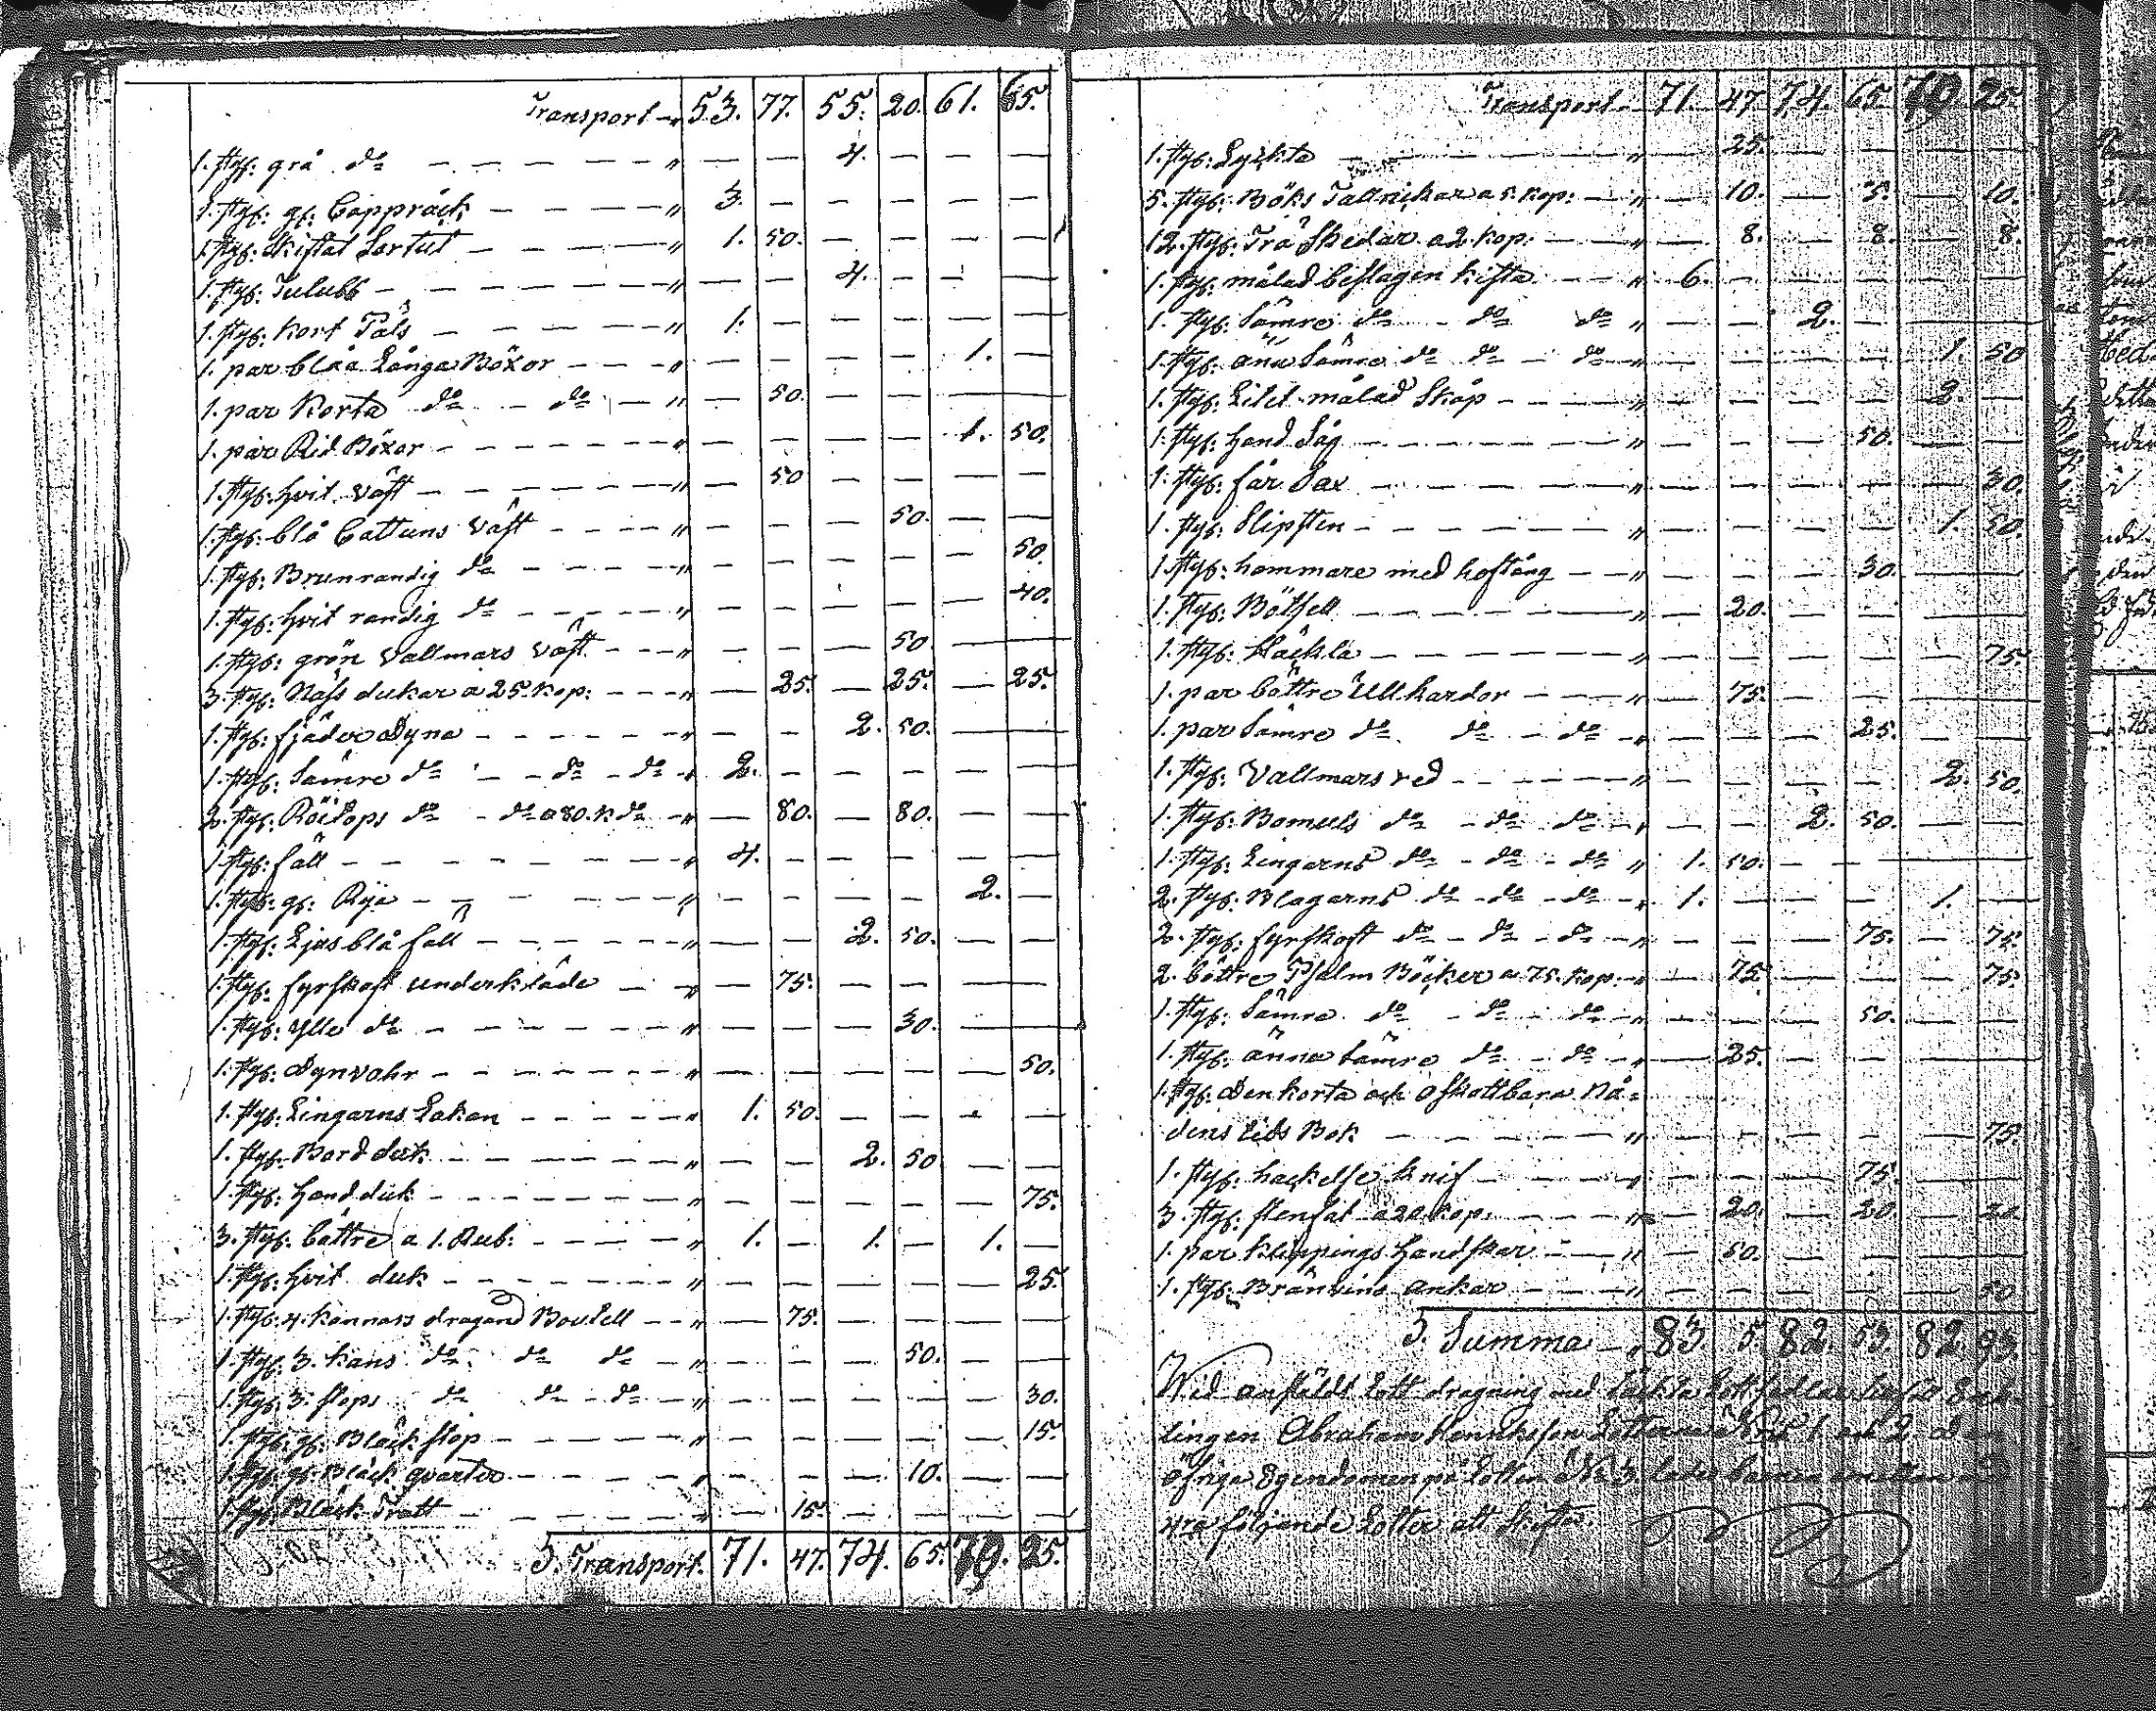 Transport — „ 53. 77. 55. 20. 61. 65.
1. styk: grå do — — — — — „ — — 4. — — —
1. styk: gl: Cappråck — — — — „ 3. — — — — —
1. styk: Skiftat Sortut — — — — „ 1. 50. — — — —
1. styk: Tulubb — — — — — „ — — 4. — — —
1. styk: kort Päls — — — — „ 1. — — — — —
1. par blåa Långa Böxor — — — „ — — — — 1. —
1. par Korta do — do — „ — 50. — — — —
1. par Rid Böxor — — — — „ — — — — 1. 50.
1. styk: hvit väst — — — — „ — 50 — — — —
1. styk: blå Cattuns väst — — — „ — — — 50. — —
1. styk: Brunrandig do — — — „ — — — — — 50.
1. styk: hvit randig do — — — „ — — — — — 40.
1. styk: grön vallmars väst — — — „ — — — 50 — —
3. styk: Näss dukar a 25. kop: — — — „ — 25. — 25. — 25.
1. styk: fjäder Dyna — — — — „ — — 2. 50. — —
1. styk: Sämre do — do — do „ 2. — — — — —
2. styk: do — do a 80. k do — „ — 80. — 80. — —
1. styk: fäll — — — — — „ 4. — — — — —
1. styk: gl: Rya — — — — „ — — — — 2. —
1. styk: Ljusblå fäll — — — — „ — — 2. 50. — —
1. styk: fyrskaft underkläde — — „ — 75. — — — —
1. styk: ylle do — — — — „ — — — 30. — —
1. styk: Dynvahr — — — — „ — — — — — 50.
1. styk: Lingarns Lakan — — — — „ 1. 50. — — — —
1. styk: Bord duk — — — — „ — — 2. 50 — —
1. styk: Hand duk — — — — „ — — — — — 75.
3. styk: bättre a 1. Rub: — — — „ 1. — 1. — 1. —
1. styk: hvit duk — — — — „ — — — — — 25.
1. styk: 4. kannors dragand Boutell — — „ — 75. — — — —
1. styk: 3. kans do. do do — „ — — — 50. — —
1. styk: 3. stops do do — do — „ — — — — — 30.
1. styk: gl: Bläck stop — — — — „ — — — — — 15.
1. styk: gl: Bläck qvarter — — — „ — — — 10. — —
1. styk: Bläck Tratt — — — — „ — 15. — — — —
S. Transport. 71. 47. 74. 65. 79. 25.
Transport — 71. 47 74. 65. 79 25.
1. styk: Lyckta — — — — „ — 25. — — — —
5. styk: Böks Tallrickar a 5. kop: — „ — 10. — 5. — 10.
12. styk: Trä Skedar a 2 kop: — „ — 8. — 8. — 8.
1. styk: målad beslagen kista — — „ 6. — — — — —
1. styk: Sämre do — do do „ — — 2. — — —
1. styk: änu Sämre do do — do „ — — — — 1. 50
1. styk: Litet målad Skåp — — — „ — — — — 2. —
1. styk: Hand Såg — — — — „ — — — 50. — —
1. styk: får Sax — — — — „ — — — — — 30.
1. styk: Slipsten — — — — „ — — — — 1. 50.
1. styk: hammare med hoftång — — „ — — — 30. — —
1. styk: — — — — „ — 20. — — — —
1. styk: Häckla — — — — „ — — — — — 75.
1. par bättre Ullkardor — — — „ — 75. — — — —
1. par Sämre do. do — do „ — — — 25. — —
1. styk: Vallmars red — — — „ — — — — 2. 50.
1. styk: Bomuls do — do do — „ — — 2. 50. — —
1. styk: Lingarns do — do — do „ 1. 50. — — — —
2. styk: Blagarns do — do — do — „ 1. — — — 1. —
2. styk: fyrskaft do — do — do — „ — — — 75. — 75.
2. bättre Psalm Böcker a 75. kop: — „ — 75 — — — 75.
1. styk: Sämre do — do — do — „ — — — 50. — —
1. styk: änna Sämre do — do — „ — 25. — — — —
1. styk: Den korta och oskattbara Nå=
dens tids Bok — — — — „ — — — — — 75.
1. styk: hackelse knif — — — „ — — — 75. — —
3. styk: stenfat a 20 kop: — — — „ — 20. — 20. — 20
1. par Klippings Handskar — — „ — 50. — — — —
1. styk: Bränvins ankar — — — „ — — — — — 50
S. Summa — „ 83 5. 82. 53. 82. 93.
Wid anstäldt Lott dragning med
lingen Abraham Lotterne 1 och 2. Den
öfriga Egendomen på Lotten No 3.
4ra följande Lotter att Skifta.